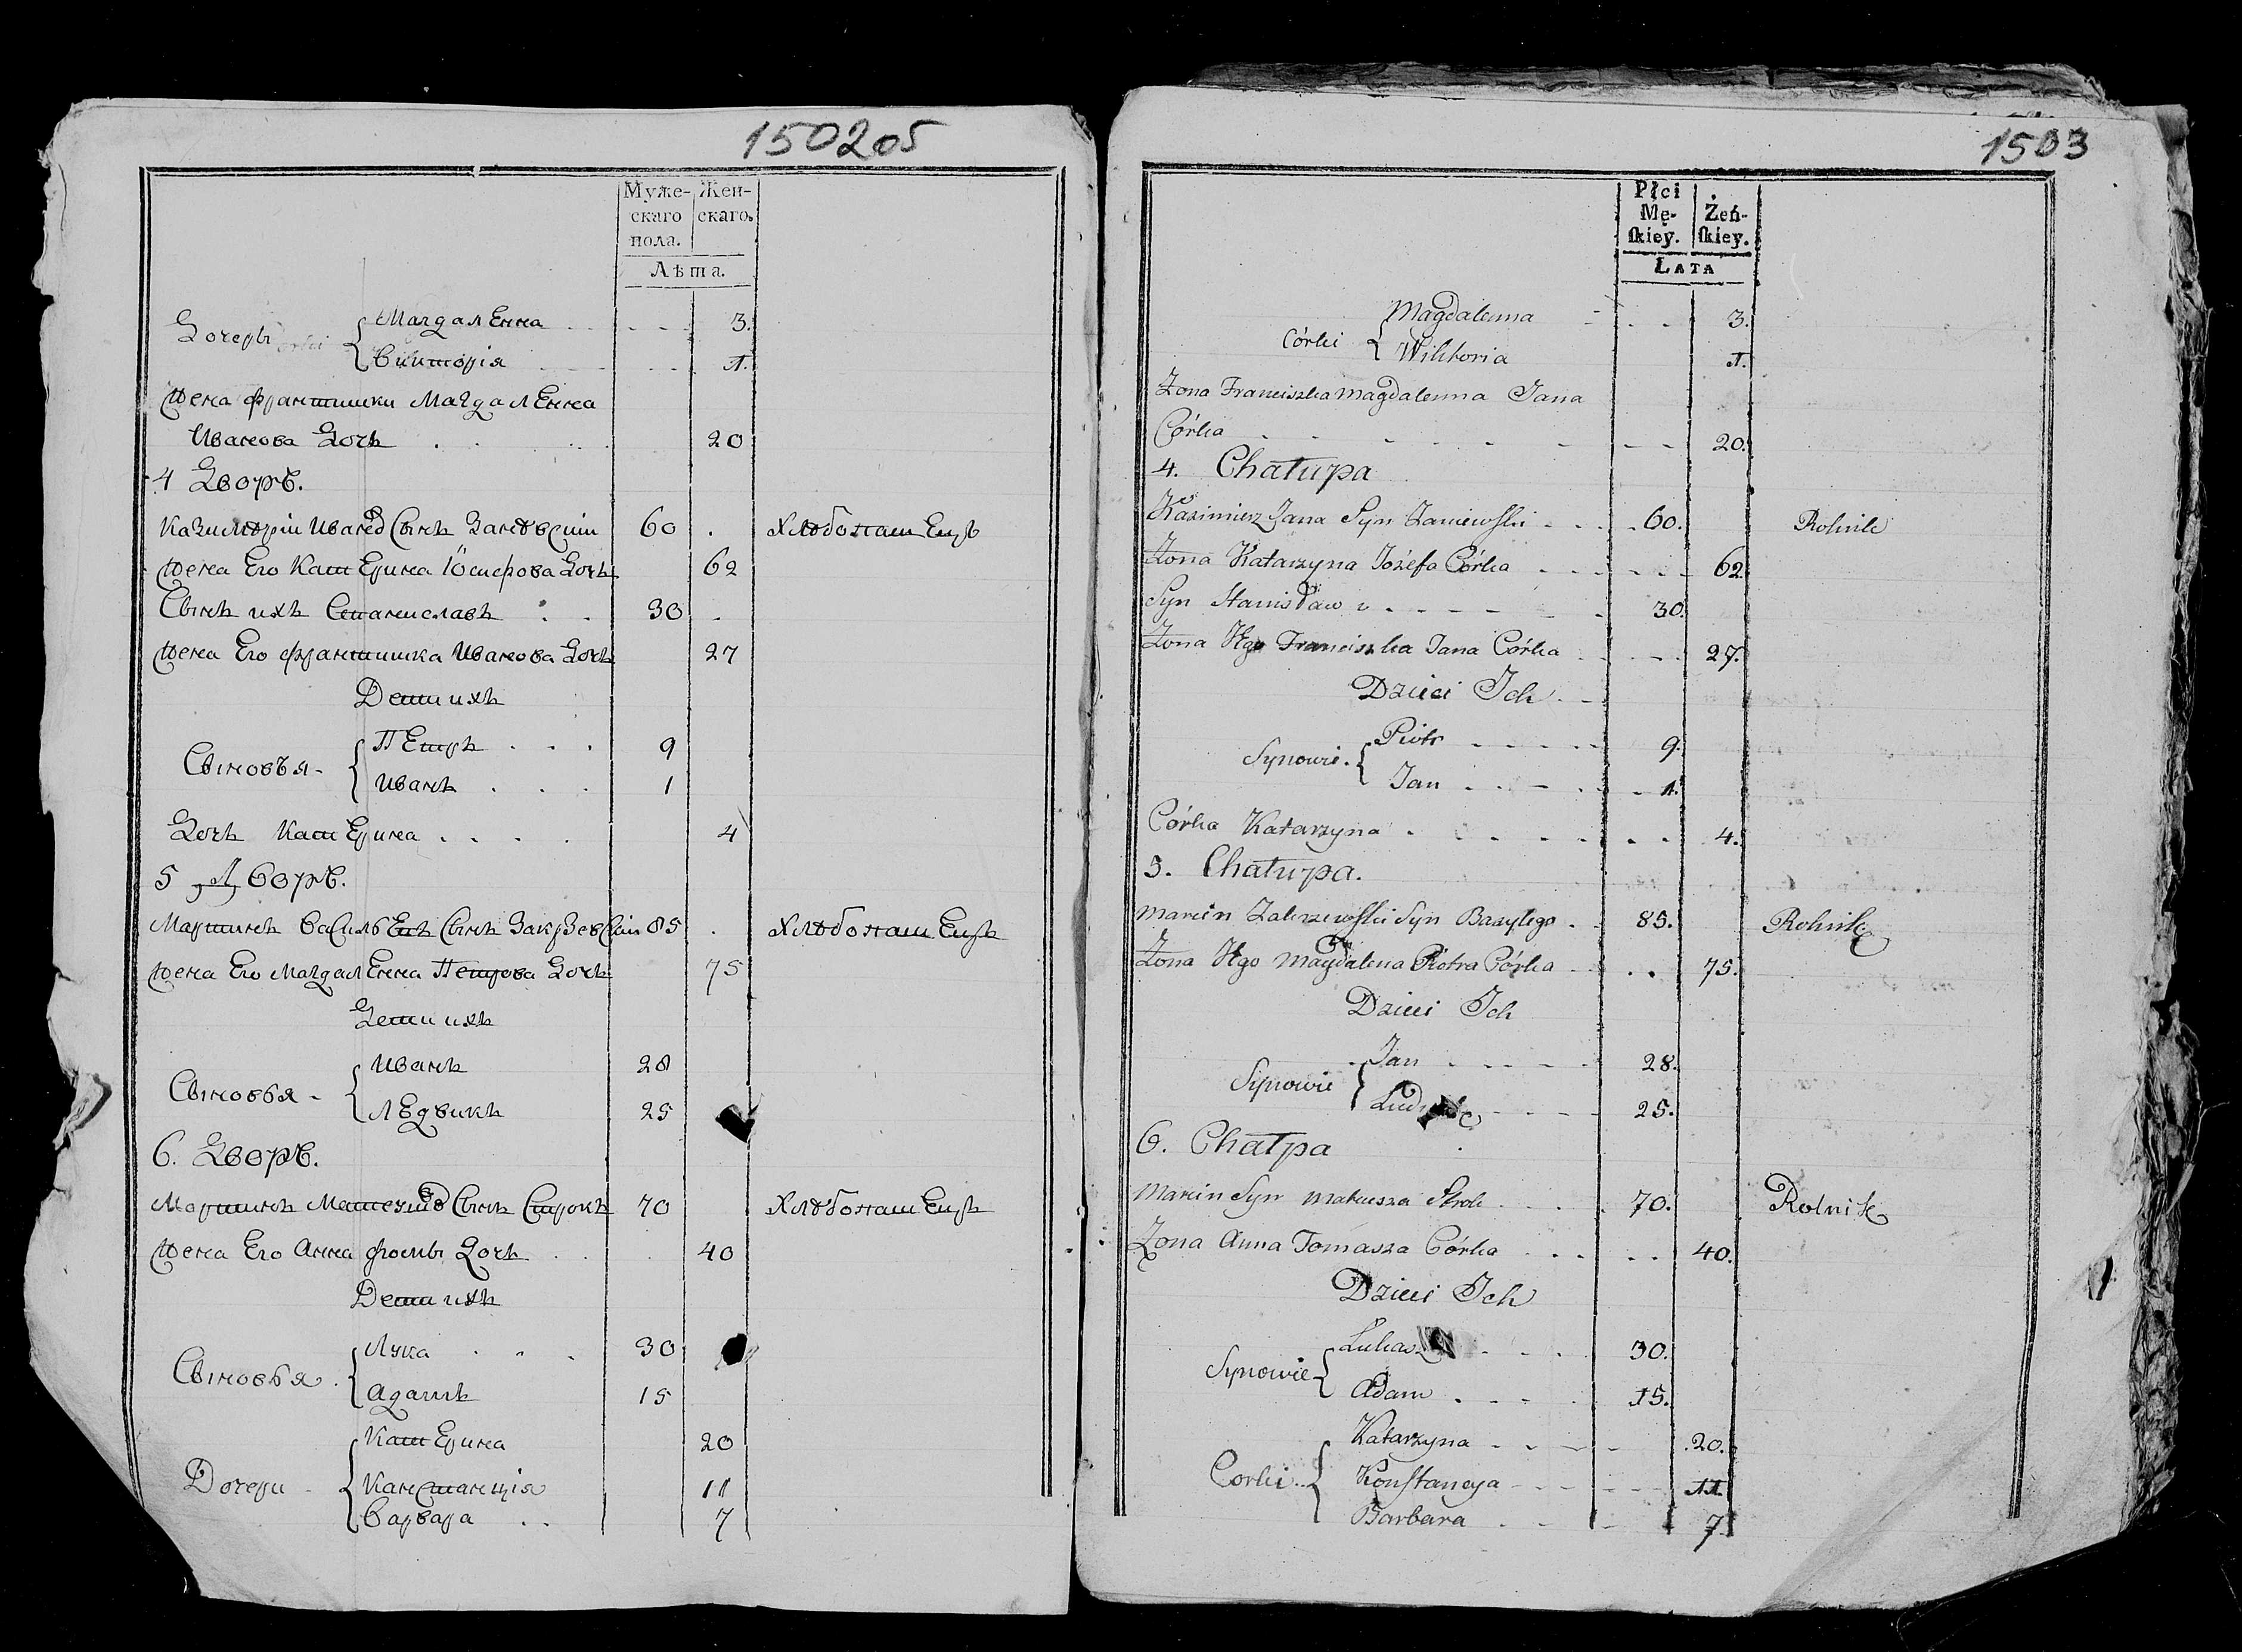 150205
Муже-
скаго
пола.
Жен-
скаго.
Лѣта.
Дочеры { Магдаленна . . . . 3.
Викторія . . . 1.
Жена Франтишки Магдаленна
Иванова Дочь . . . 20
4 Дворъ.
Казимѣрій Ивановъ Сынъ Заневскій 60 . Хлѣбопашецъ
Жена Его Катерина Іосифова Дочь 62
Сынъ ихъ Станиславъ . . 30 .
Жена Его Франтишка Иванова Дочь 27
Дети ихъ
Сыновъя - { Петръ . . . 9
Иванъ . . . 1
Дочь Катерина . . . . 4
5 Дворъ.
Мартинъ Васильевъ Сынъ Закрзевскій 85 . Хлѣбопашецъ
Жена Его Магдаленна Петрова Дочь 75
Дети ихъ
Сыновья - { Иванъ 28
Лѣдвикъ 25
6. Дворъ.
Мартинъ Матеушов Сынъ Строкъ 70 Хлѣбопашецъ
Жена Его Анна Фомы Дочь . . . 40
Дети ихъ
Сыновья . { Лука . . . 30
Адамъ 15
Дочери - { Катерина 20
Констанція 11
Варвара . . 7
1503
Płci
Mę-
ſkiey.
Żeń-
ſkiey.
LATA
Córki { Magdalenna - . . 3.
Wiktoria 1.
Zona Franciszka Magdalenna Jana
Córka - - - - - - - 20.
4. Chatupa
Kazimierz Jana Syn Zaniewſki - - . 60. Rolnik
Zona Katarzyna Józefa Córka - - - - - 62.
Syn Stanisław . - - - - 30.
Zona Jego Franciszka Jana Córka - - - 27.
Dzieci Ich . - -
Synowie . { Piotr - - - - - 9.
Jan - - - - - 1.
Córka Katarzyna . . - - - - . . 4.
5. Chatupa.
Marcin Zakrzewſki Syn Bazylego . 85. Rolnik
Zona Jego Magdalena Piotra Córka - . . 75.
Dzieci Ich
Synowie { Jan - - - - - 28.
- - - - 25.
6. Chatpa
Marcin Syn Mateusza Strok . . . 70. Rolnik
Zona Anna Tomasza Córka . . . . . 40.
Dzieci Ich
Synowie - { Lukasz - . . . 30.
Adam . - - . 15.
Corki . . { Katarzyna - - - - .20.
Konſtancya - - - - - - 11.
Barbara . - - - 7.